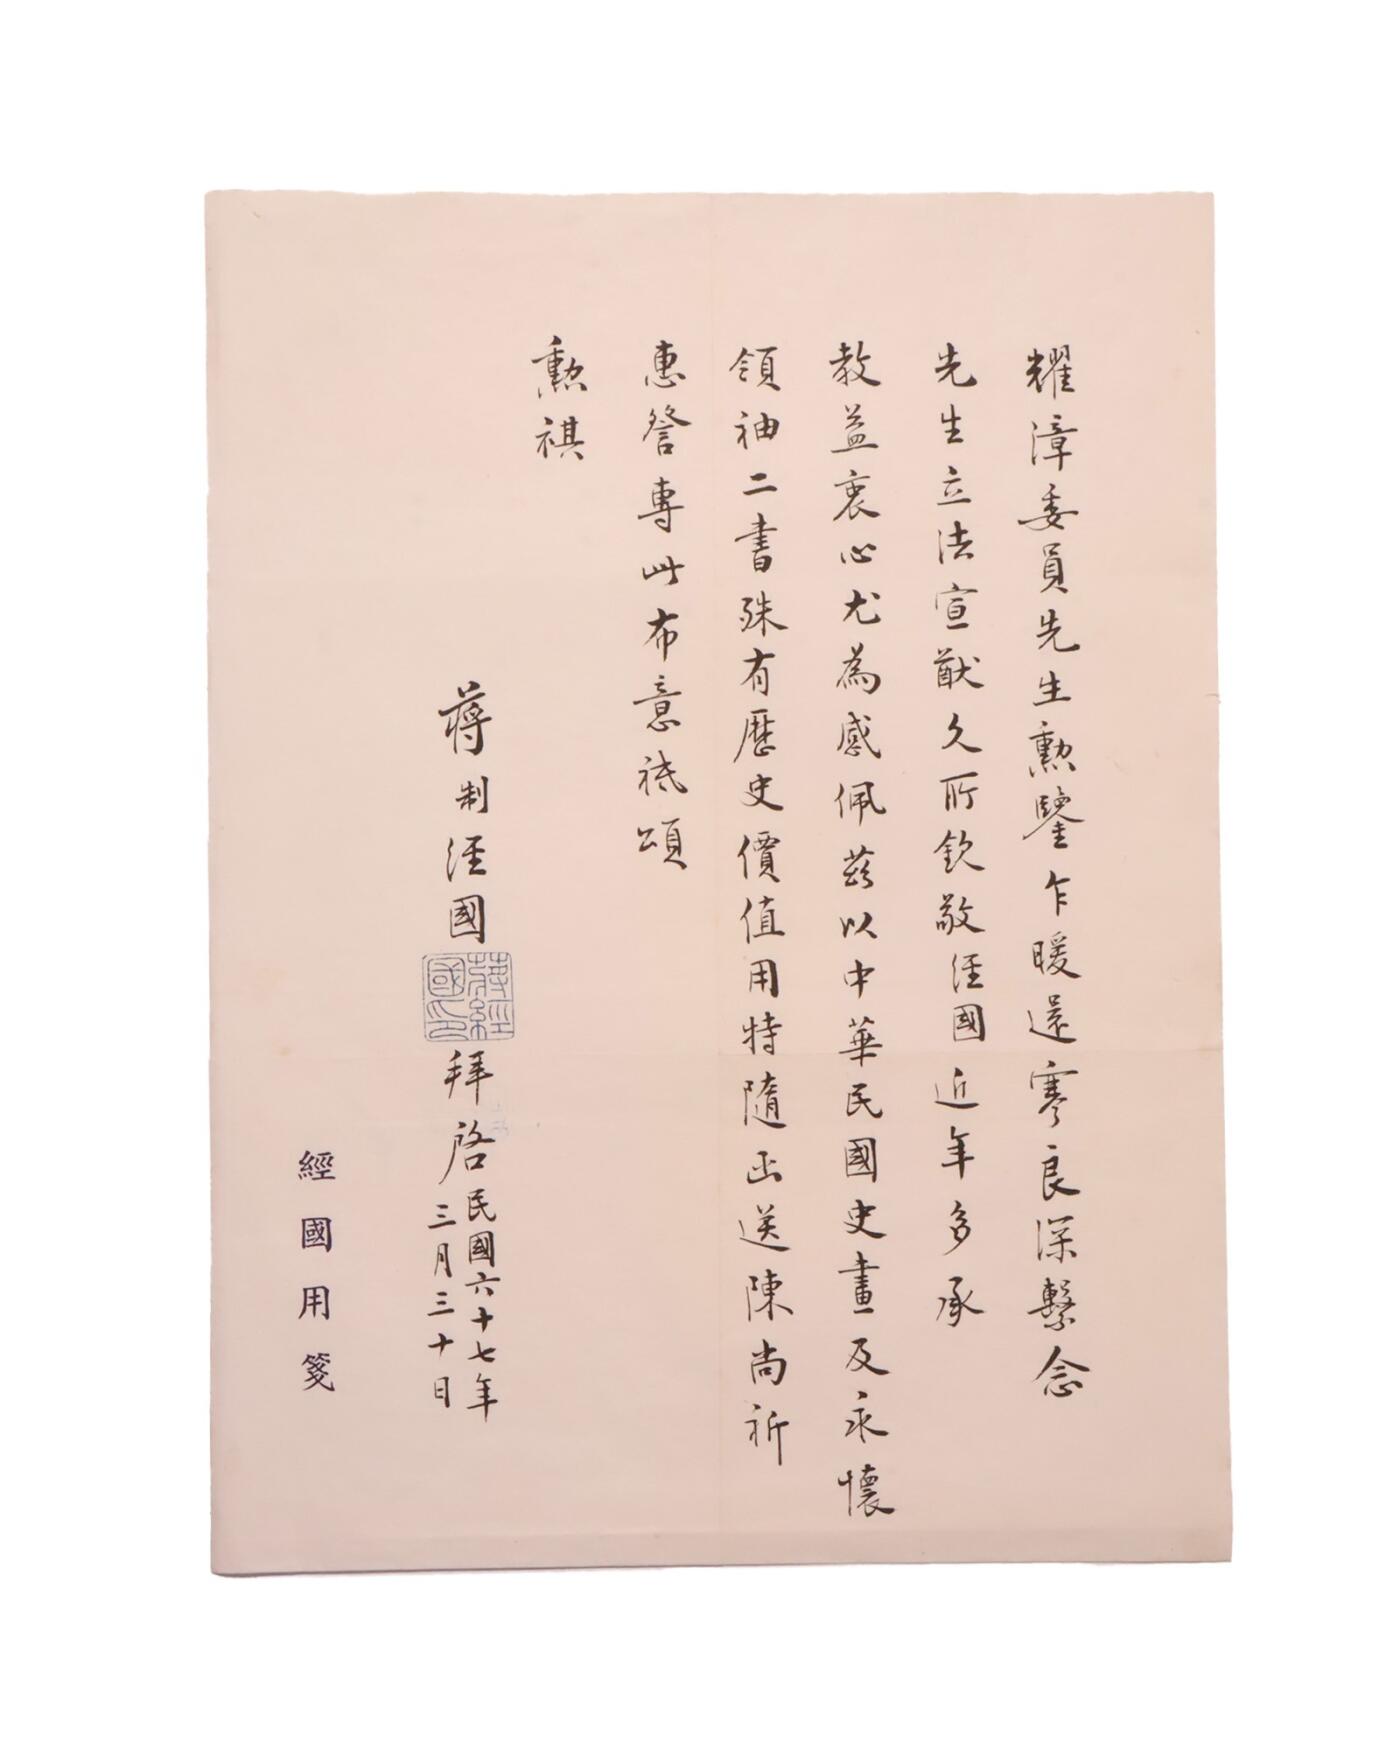 耀漳委員先生勲鑒乍暖還寒良深繫念
先生立法宣猷久所欽敬經國近年多承
教益衷心尤為感佩茲以中華民國史畫及永懷
領袖二書殊有歷史價值用特隨函送陳尚祈
惠詧專此布意祗頌
勲祺
蔣制經國
蔣經國印
拜啓
民國六十七年
三月三十日
經國用箋